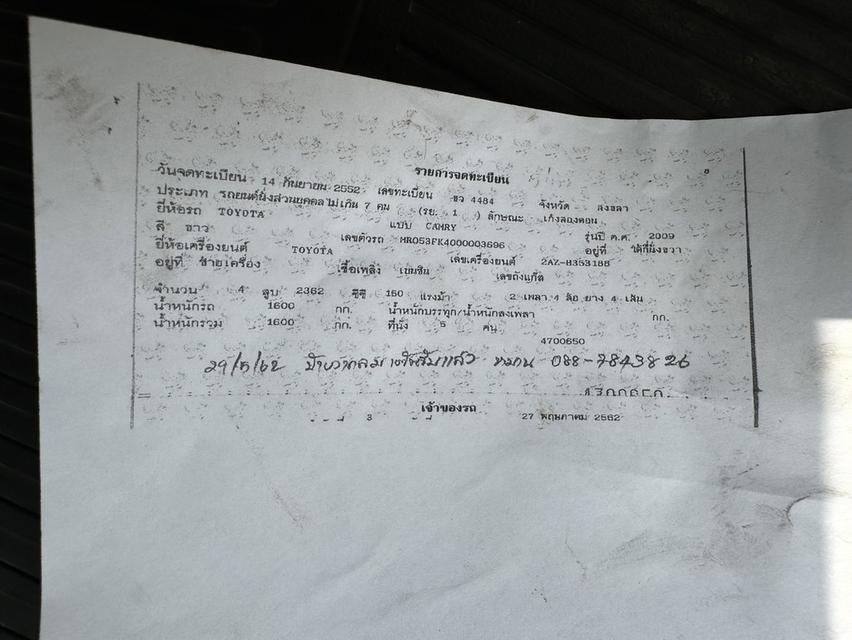 รายการจดทะเบียน
วันจดทะเบียน 14 กันยายน 2552 เลขทะเบียน ขว 4484 จังหวัด สงขลา
ประเภท รถยนต์นั่งส่วนบุคคลไม่เกิน 7 คน (รย. 1 ) ลักษณะ เก๋งสองตอน
ยี่ห้อรถ TOYOTA แบบ CAMRY รุ่นปี ค.ศ. 2009
สี ขาว เลขตัวรถ MR053FK4000003696 อยู่ที่ ใต้ที่นั่งขวา
ยี่ห้อเครื่องยนต์ TOYOTA เลขเครื่องยนต์ 2AZ-H353188
อยู่ที่ ซ้ายเครื่อง เชื้อเพลิง เบนซิน เลขถังแก๊ส
จำนวน 4 สูบ 2362 ซีซี 160 แรงม้า 2 เพลา 4 ล้อ ยาง 4 เส้น
น้ำหนักรถ 1600 กก. น้ำหนักบรรทุก/น้ำหนักลงเพลา กก.
น้ำหนักรวม 1600 กก. ที่นั่ง 5 คน
4700650
29/5/62 088-7843826
เจ้าของรถ
3 27 พฤษภาคม 2562